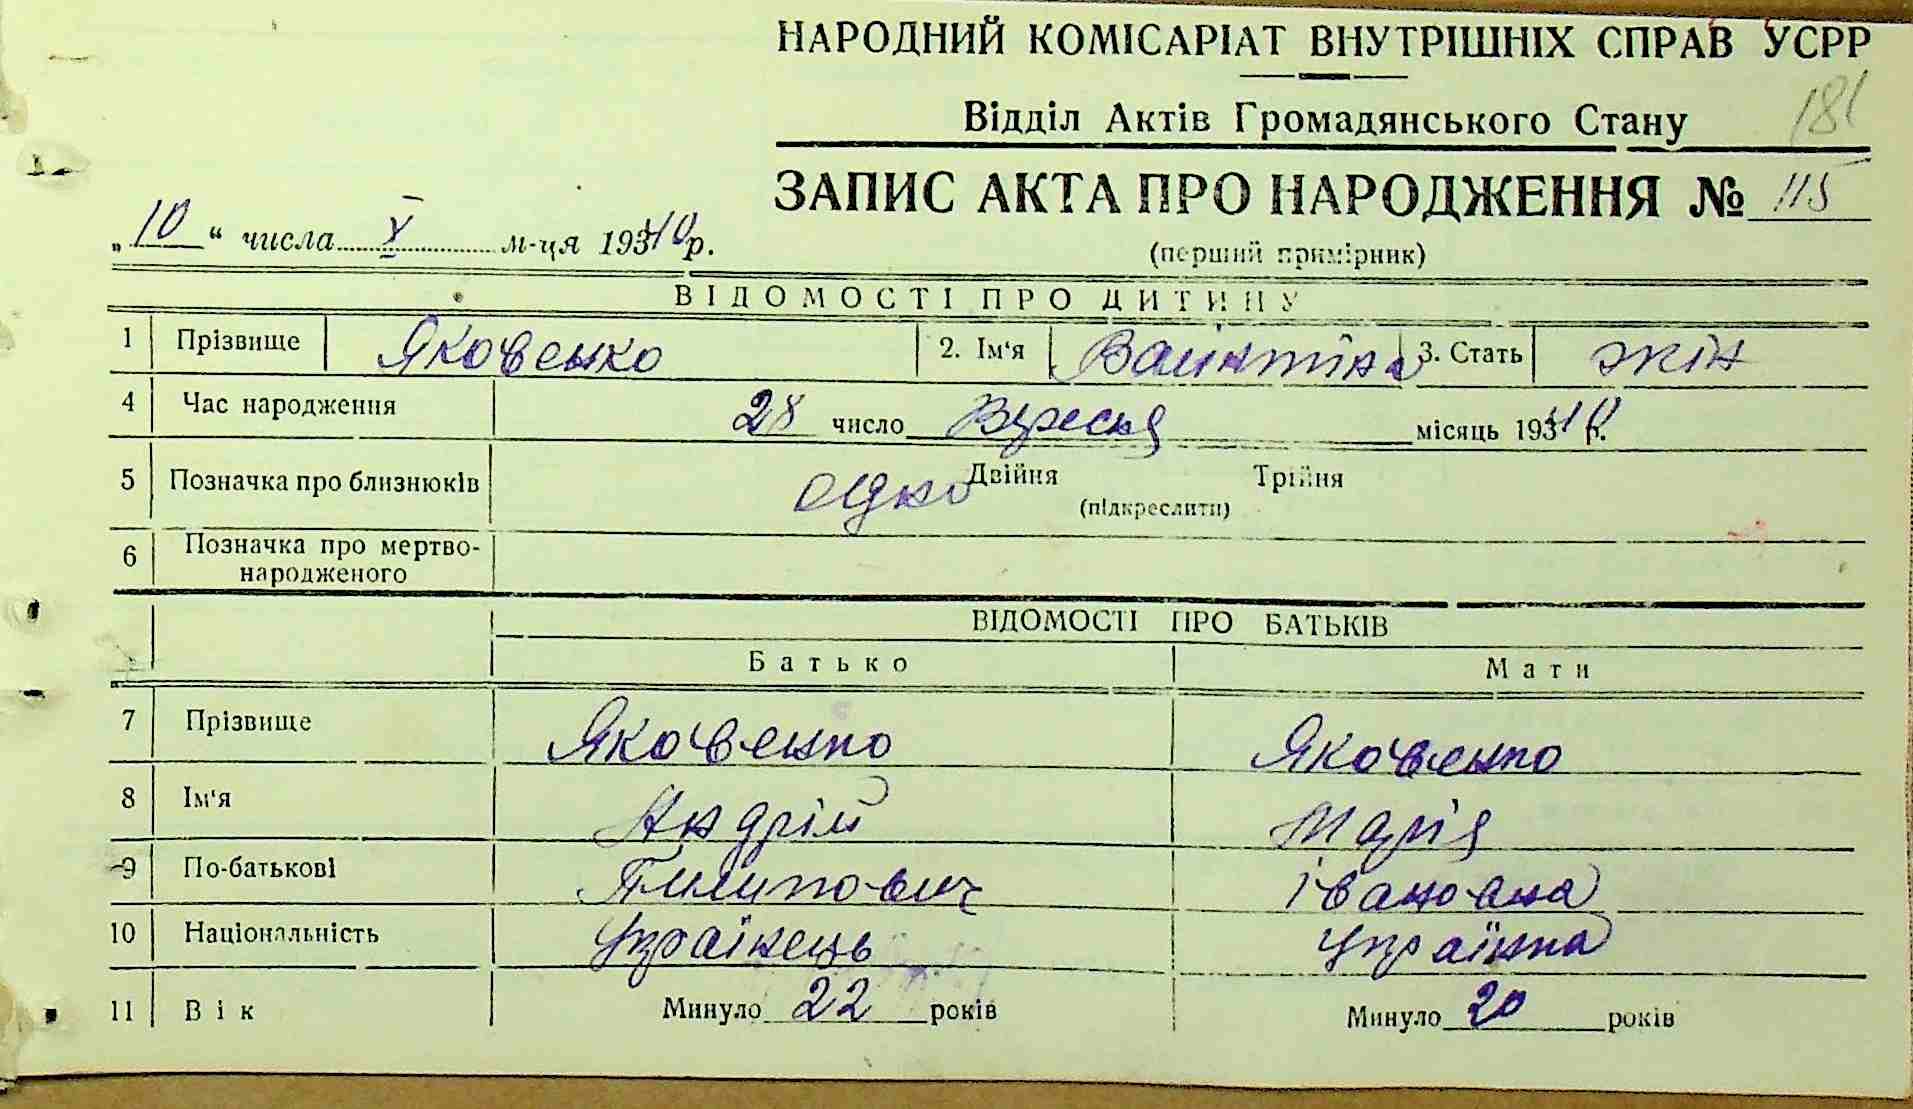 НАРОДНИЙ КОМІСАРІАТ ВНУТРІШНІХ СПРАВ УСРР
Відділ Актів Громадянського Стану 181
ЗАПИС АКТА ПРО НАРОДЖЕННЯ № 115
„10“ числа X м-ця 1940 р.
(перший примірник)
ВІДОМОСТІ ПРО ДИТИНУ
1 Прізвище Яковенко 2. Ім'я Валінтіна 3. Стать жін
4 Час народження 28 число Вересня місяць 1940 р.
5 Позначка про близнюків одно Двійня Трійня
(підкреслити)
6 Позначка про мертво-
народженого
ВІДОМОСТІ ПРО БАТЬКІВ
Батько Мати
7 Прізвище Яковенко Яковенко
8 Ім'я Андрій Марія
9 По-батькові Пилипович Івановна
10 Національність Українець Українка
11 Вік Минуло 22 років Минуло 20 років